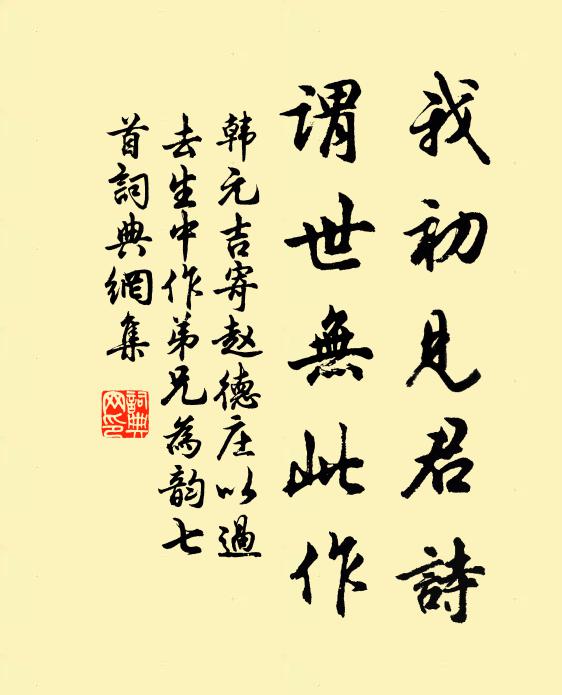 我初見君詩
謂世無此作
韩元吉寄赵德庄以過
去生中作弟兄為韵七
首詞典網集
詞典
网印